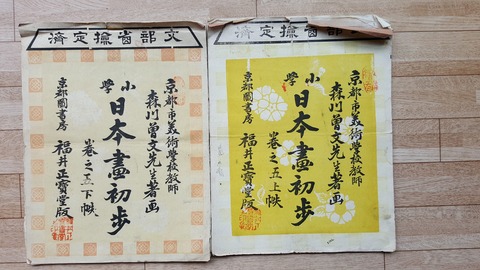 文部省撿定濟
京都市美術學校教師
森川曽文先生著画
小學
日本畫初步
卷之五上帙
京都圖書房
福井正寶堂版
文部省撿定濟
京都市美術學校教師
森川曽文先生著画
小學
日本畫初步
卷之五下帙
京都圖書房
福井正寶堂版